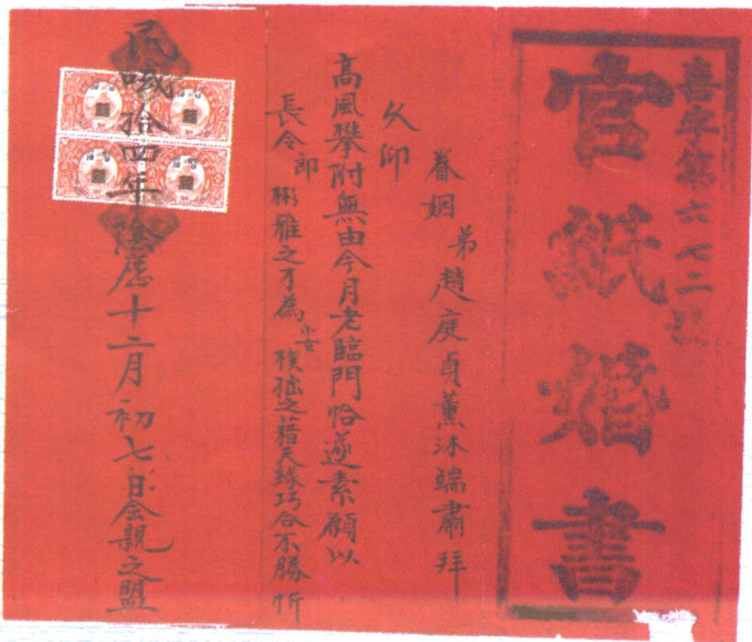 喜字第六七二號
官紙婚書
眷姻弟趙庭貞薰沐端肅拜
久仰
高風攀附無由今月老臨門恰遂素願以
長令郎彬雅之才為小女樸拙之藉天緣巧合不勝忻
民國拾四年陰厯十二月初七日会親之盟